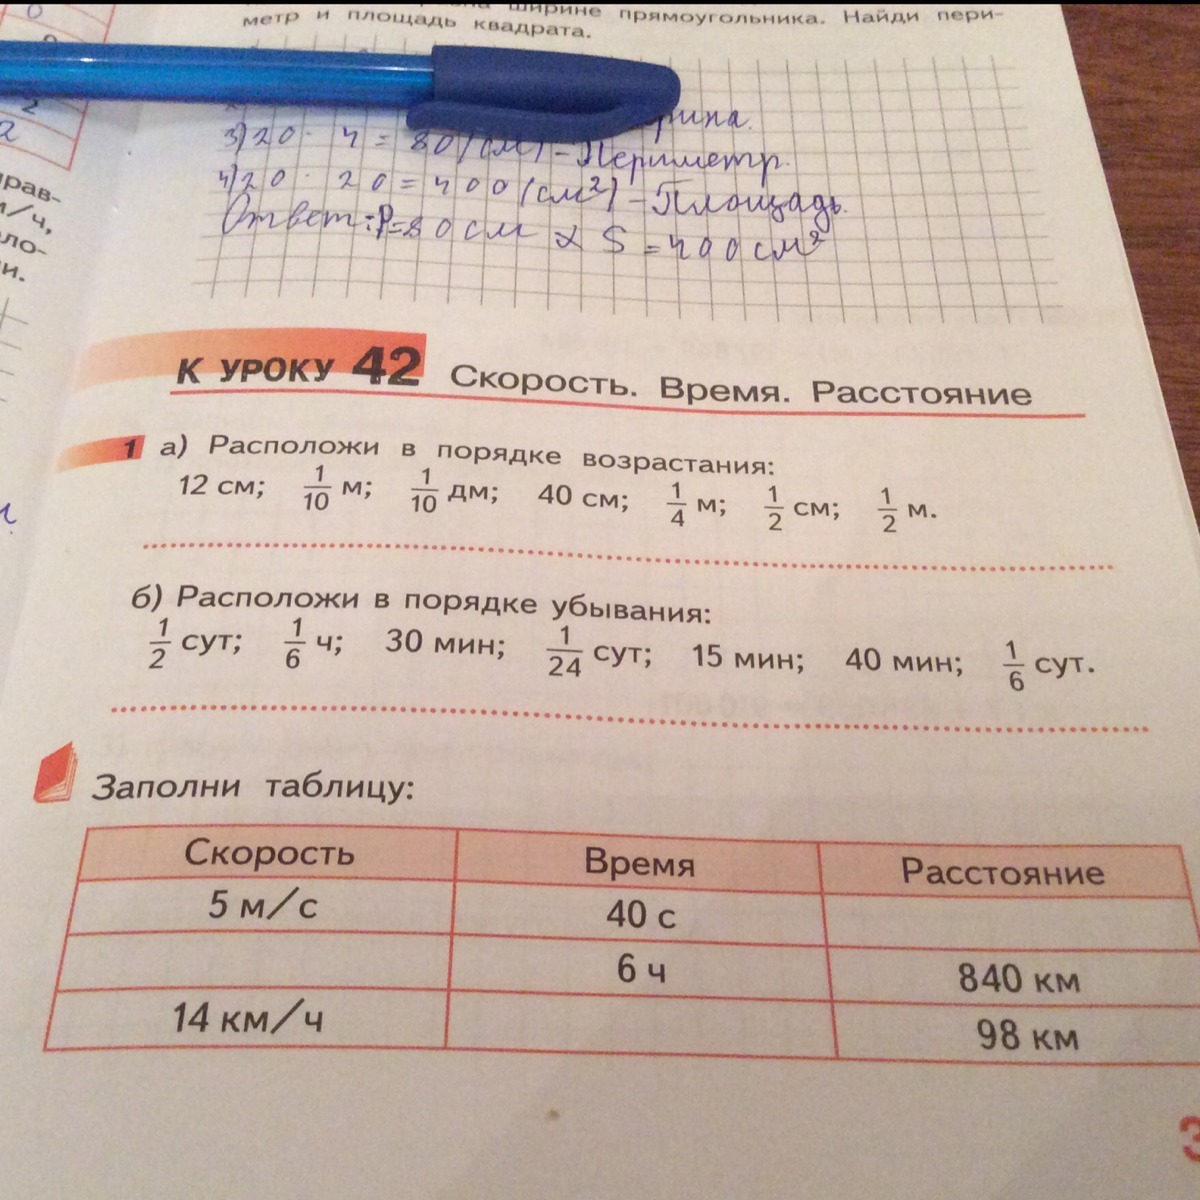 ширине прямоугольника. Найди пери-
метр и площадь квадрата.
3) 20 · 4 = 80 (см) - Периметр.
4) 20 · 20 = 400 (см²) - Площадь.
Ответ: P=80см и S=400см²
К УРОКУ 42 Скорость. Время. Расстояние
1 а) Расположи в порядке возрастания:
12 см; 1/10 м; 1/10 дм; 40 см; 1/4 м; 1/2 см; 1/2 м.
б) Расположи в порядке убывания:
1/2 сут; 1/6 ч; 30 мин; 1/24 сут; 15 мин; 40 мин; 1/6 сут.
Заполни таблицу:
Скорость Время Расстояние
5 м/с 40 с
6 ч 840 км
14 км/ч 98 км
3